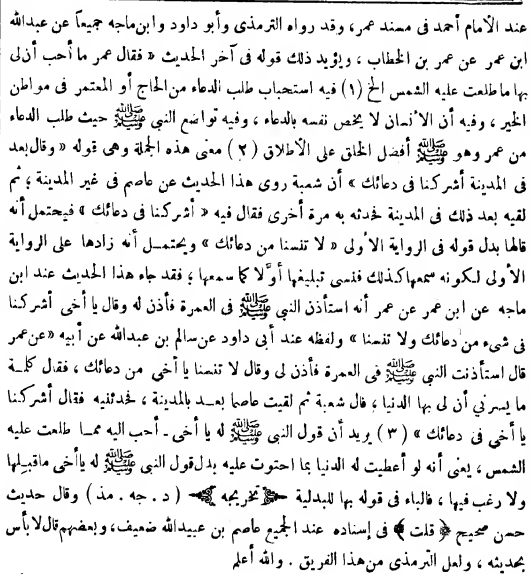 عند الامام أحمد فى مسند عمر، وقد رواه الترمذى وأبو داود وابن ماجه جميعاً عن عبدالله
ابن عمر عن عمر بن الخطاب ، ويؤيد ذلك قوله فى آخر الحديث « فقال عمر ما أحب أن لى
بها ما طلعت عليه الشمس الخ (١) فيه استحباب طلب الدعاء من الحاج أو المعتمر فى مواطن
الخير ، وفيه أن الانسان لا يخص نفسه بالدعاء ، وفيه تواضع النبي ﷺ حيث طلب الدعاء
من عمر وهو ﷺ أفضل الخلق على الأطلاق (٢) معنى هذه الجملة وهى قوله « وقال بعد
فى المدينة أشركنا فى دعائك » أن شعبة روى هذا الحديث عن عاصم فى غير المدينة ؛ ثم
لقيه بعد ذلك فى المدينة فحدثه به مرة أخرى فقال فيه « أشركنا فى دعائك » فيحتمل أنه
قالها بدل قوله فى الرواية الأولى « لا تنسنا من دعائك » ويحتمــل أنه زادها على الرواية
الأولى لـكونه سمعها كـذلك فنسى تبليغها أولا كما سمعها ؛ فقد جاء هذا الحديث عند ابن
ماجه عن ابن عمر عن عمر أنه استأذن النبي ﷺ فى العمرة فأذن له وقال يا أخى أشركنا
فى شىء من دعائك ولا تنسنا » ولفظه عند أبى داود عن سالم بن عبدالله عن أبيه « عن عمر
قال استأذنت النبي ﷺ فى العمرة فأذن لى وقال لا تنسنا يا أخى من دعائك ، فقال كلمــة
ما يسرنى أن لى بها الدنيا ؛ قال شعبة ثم لقيت عاصما بعــد بالمدينة ، فحدثنيه فقال أشركنا
يا أخى فى دعائك » (٣) يريد أن قول النبي ﷺ له يا أخى ـ أحب اليه ممــا طلعت عليه
الشمس ، يعنى أنه لو أعطيت له الدنيا بما احتوت عليه بدل قول النبي ﷺ له يا أخى ما قبــلها
ولا رغب فيها ، فالباء فى قوله بها للبدلية ﴿ تخريجه ﴾ ( د . جه . مذ ) وقال حديث
حسن صحيح ﴿ قلت ﴾ فى إسناده عند الجميع عاصم بن عبيدالله ضعيف ، وبعضهم قال لا بأس
بحديثه ، ولعل الترمذى من هذا الفريق . والله أعلم